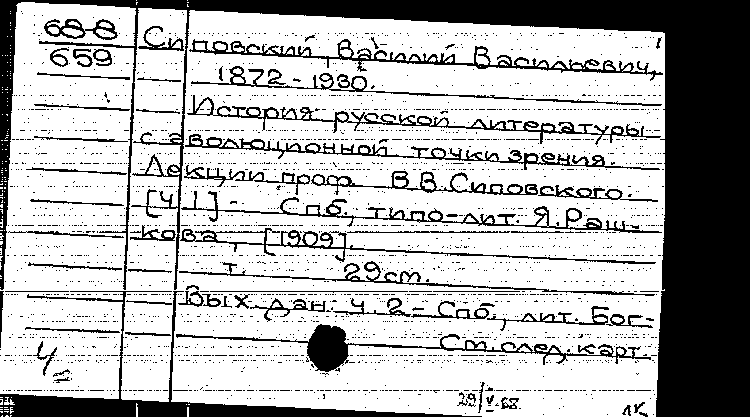 68-8
659
Сиповский, Василий Васильевич,
1872-1930.
История русской литературы
с эволюционной точки зрения.
Лекции проф. В.В.Сиповского.
[Ч.1]- Спб., типо-лит. Я.Раш-
кова, [1909].
т. 29см.
Вых. дан. ч. 2 - Спб., лит. Бог-
См.след.карт.
Ч
29/V-68